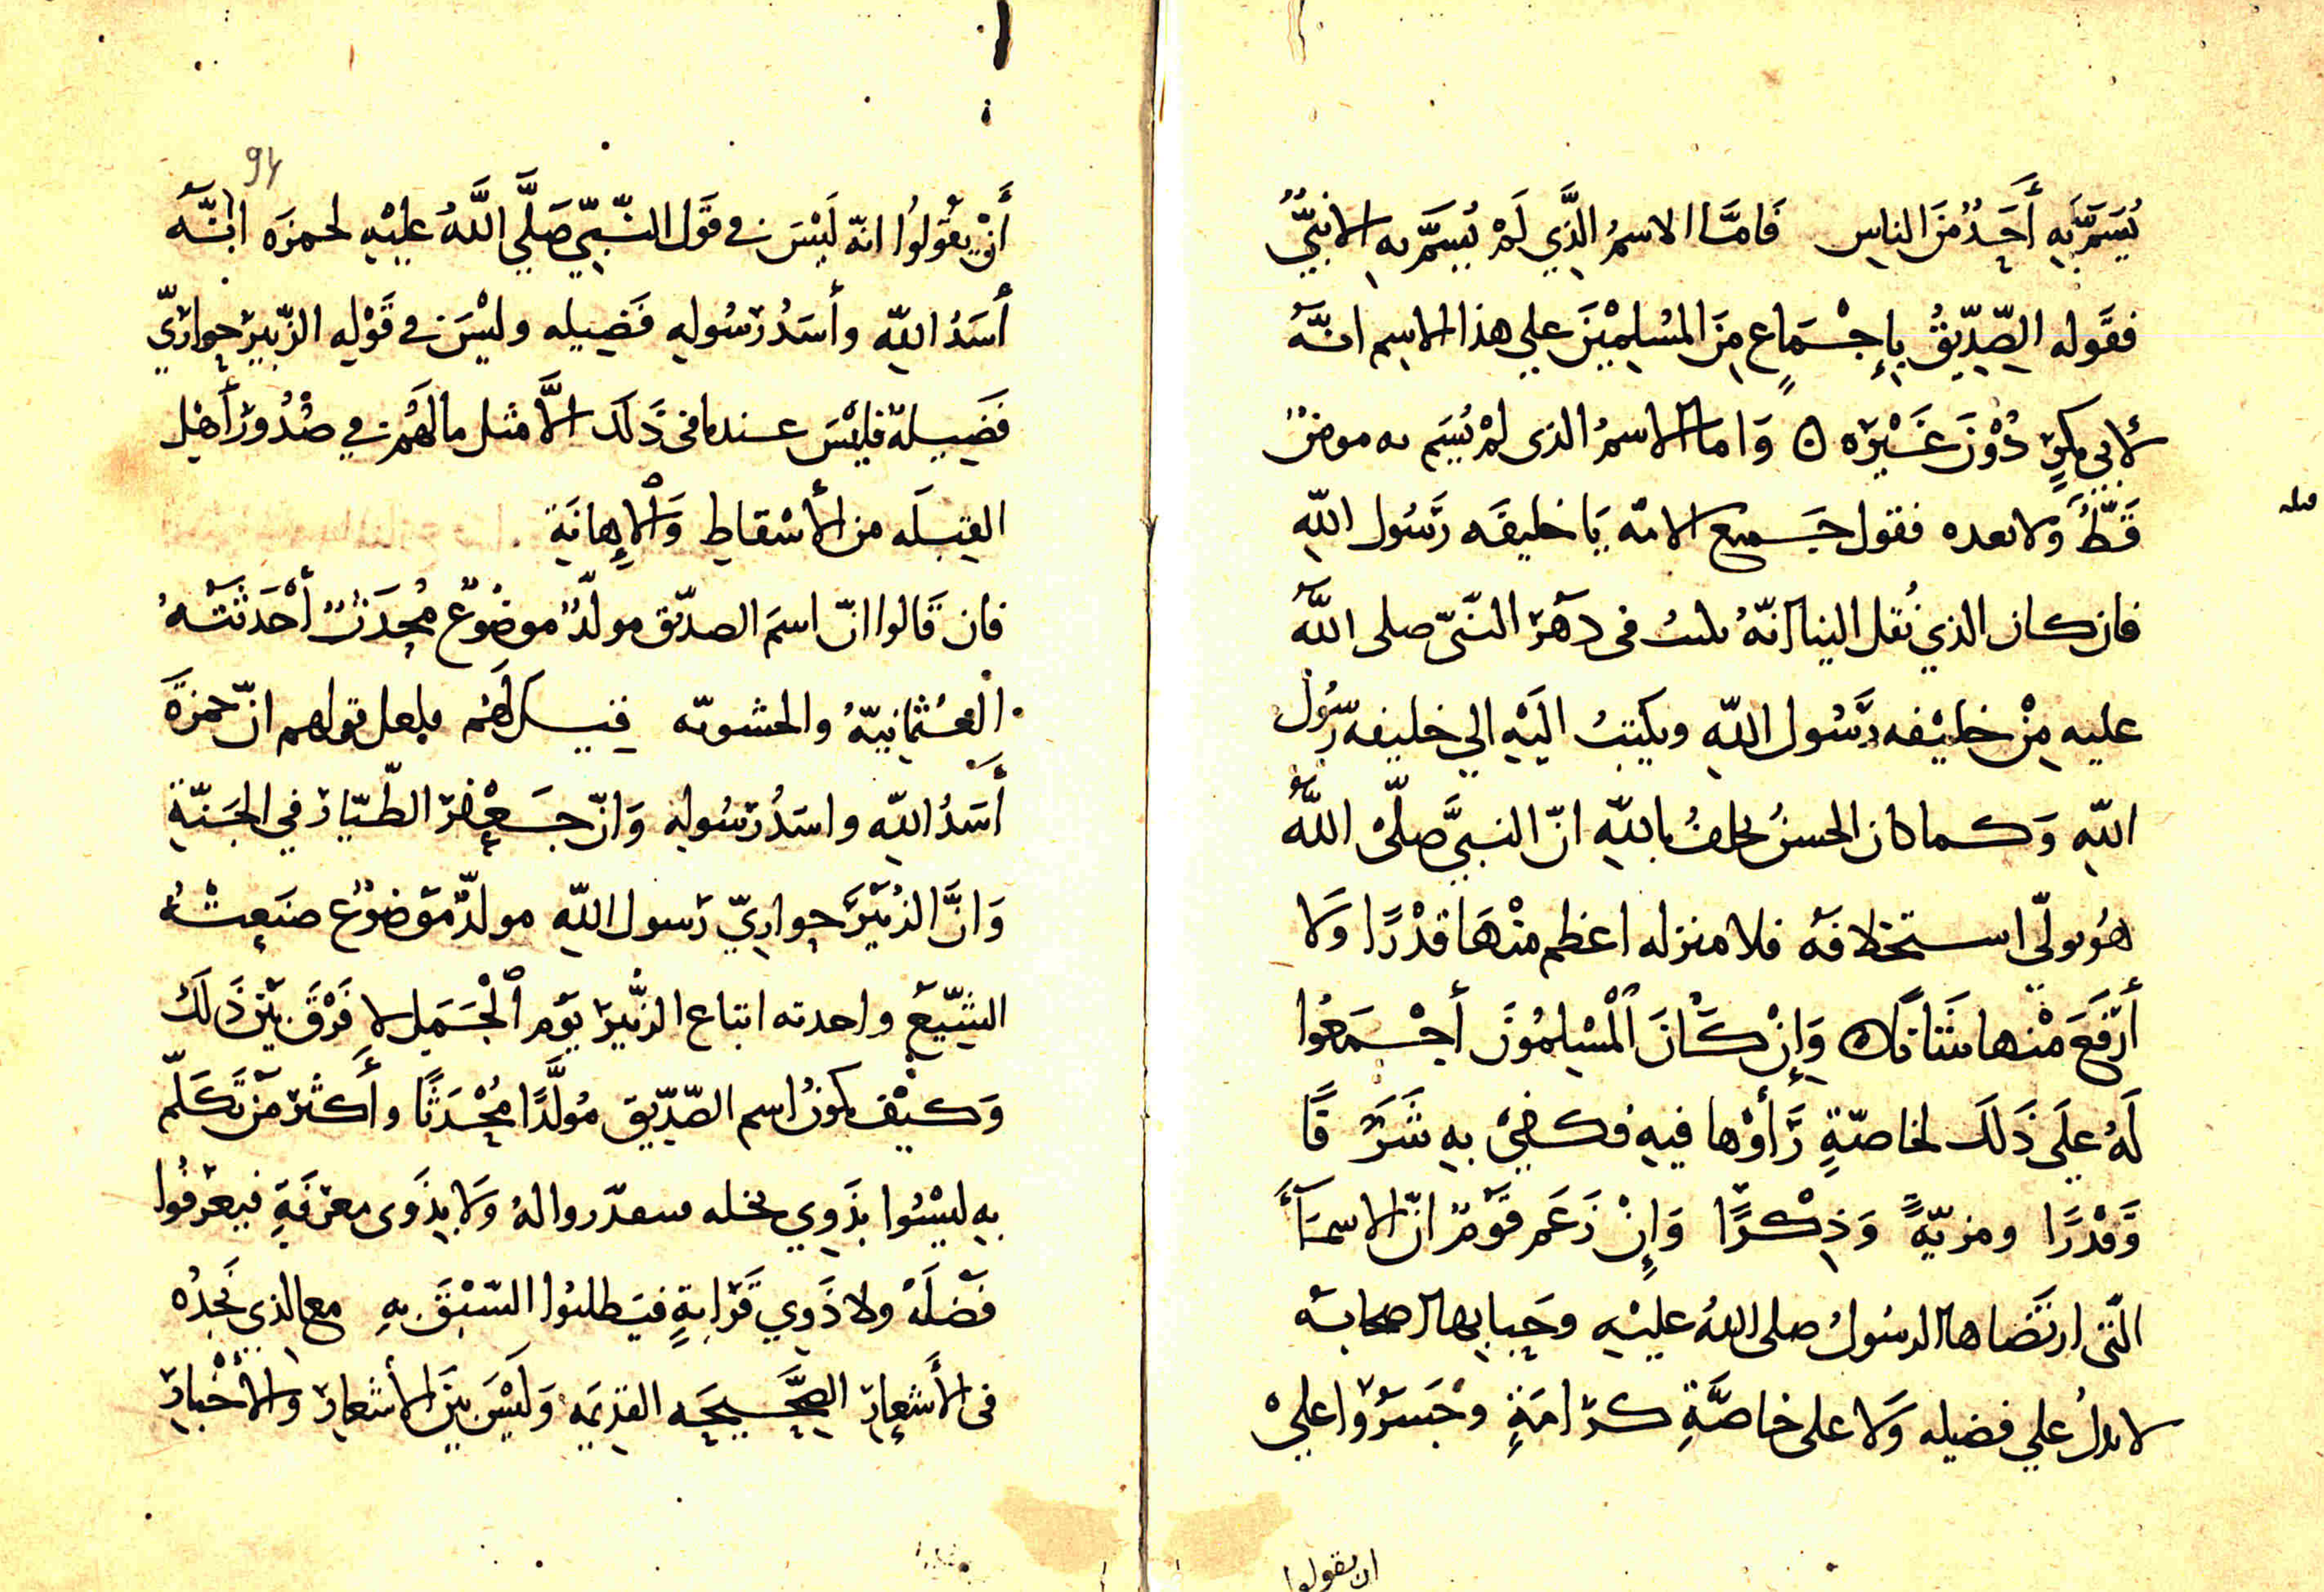 يُسَمَّ بِهِ أَحَدٌ مِنَ الناسِ فَامَّا الاسمُ الَّذِي لَمْ يُسَمَّ بهِ الا نبيٌّ
فقَوله الصِّدِّيقُ بِإِجْمَاعٍ مِنَ المُسْلِمِيْنَ علي هذا الاسِم انَّهُ
لابي بكرٍ دُوْنَ غَيْرِه ٥ وَاما الاسمُ الذى لمْ يُسَم به مومنٌ
قَطُّ وَلا بعده فقول جَميع الامّه يَا خليفَه رَسُول اللّهِ
فان كان الذي نُقل الينا انّهُ كتب فى دَهْرِ النَّبىّ صلى اللَّهُ
عليه مِنْ خليْفه رَسُول اللّهِ ويكتبُ اليْهِ الي خليفه رَسُول
اللّهِ وَكما كان الحسنُ يحلفُ باللّهِ انّ النبيَّ صلّى اللَّهُ
هُو تولّي استخلافَه فلا منزله اعظم منْهَا قدْرًا وَلا
أَرْفَعَ مْنها شَاناً ٥ وَإِنْ كَانَ الْمُسْلِمُوْنَ أَجْمَعُوا
لَهُ عَلَى ذَلَكَ لخاصّةٍ رَأَوْها فيهِ فكفيْ بهِ شَرَفًا
وَقدْرًا ومزيّهً وَذِكْرًا وَإِنْ زَعَم قوْمٌ انّ الاسمَآءَ
الّتى ارتَضَاها الرسُولُ صلى اللهُ عليْهِ وحَبَا بها اصحابَه
لا تدلُ علي فضيله وَلا على خاصَّةِ كرَامَةٍ وَجَسَرُوا عليْ
ان يقولوا
قبله
94
أَنْ يقُولُوا انهّ لَيْسَ في قَول النّبيّ صَلَّي اللَّهُ عليْهِ لحمزَه انَّهَ
أَسَدُ اللّهِ وأسَدُ رَسُولهِ فَضِيله وليْسَ في قَوْلِه الزّبير حواريّ
فَضِيلة فليْسَ عندنا فى ذَلَكَ الَّا مثل ما لهُم في صُدُورِ أَهْل
القبْلَه من الأسْقاطِ وَالإِهانَةِ
فان قَالوا انّ اسمَ الصدّيق مولّدٌ موضُوعٌ مُحدَثٌ أَحْدَثَتْهُ
العُثْمانيّهُ والحشويّه قيل لَهُم فلعل قولهم انّ حمزَةَ
أَسَدُ اللّهِ واسَدُ رَسُولهِ وَانّ جَعْفر الطّيّار في الجَنّةِ
وَانَّ الزُبَيْرَ حواريّ رَسول اللّهِ مولدٌ مَوْضوْع صنَعتْهُ
الشّيَعُ واحدثه اتباع الزبُّير يَوْم الْجَمَلِ لا فَرْقَ بَيْنَ ذَلَكَ
وَكيْف يكونُ اسم الصّدّيق مُولَّدًا مُحْدَثًا وأَكثر مَنْ تَكَلّم
بهِ ليْسُوا بذَوِي نحله فيعذروا لهُ وَلا بِذَوى معرفَةٍ فيعرفُوا
فَضلَهْ ولا ذَوي قَرَابةٍ فيَطلبُوا السّبْقَ بهِ مع الذي نجدُه
فى الأَشعارِ الصَّحيحَه القديمَه وَلَيْسَ بَيْنَ الأشعارِ والأَخْبارِ